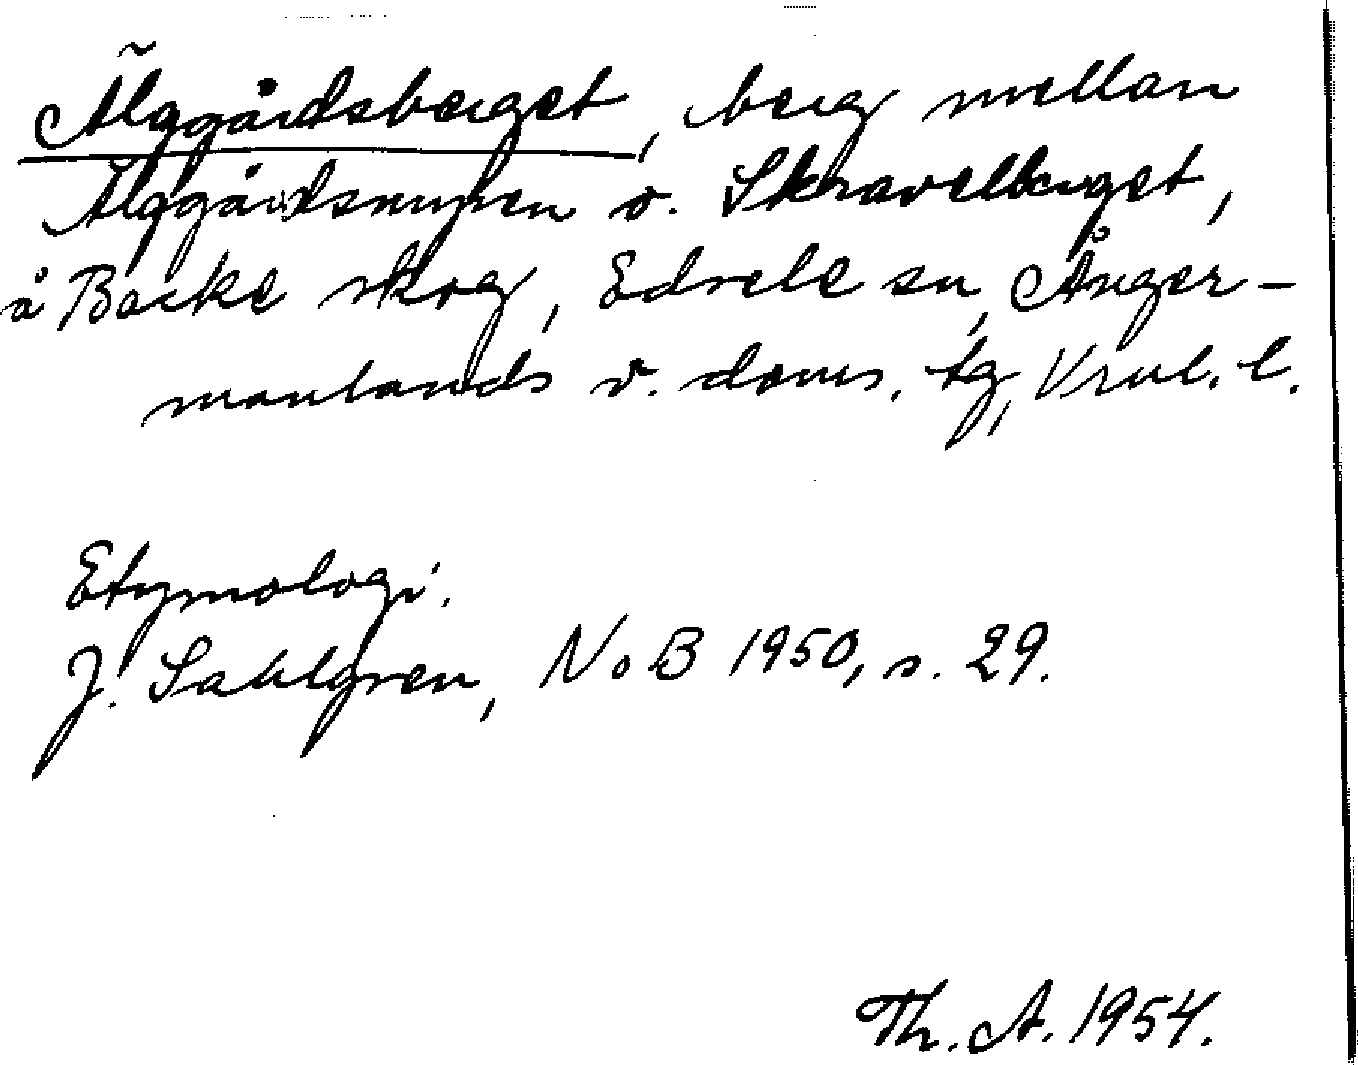 Älggårdsberget, berg mellan
Älggårdsmyren o. Skravelberget,
å Backe skog, Edsele sn, Ånger-
manlands v. doms. tg, Vrnl. l.
Etymologi:
J. Sahlgren, NoB 1950, s. 29.
Th. A. 1954.